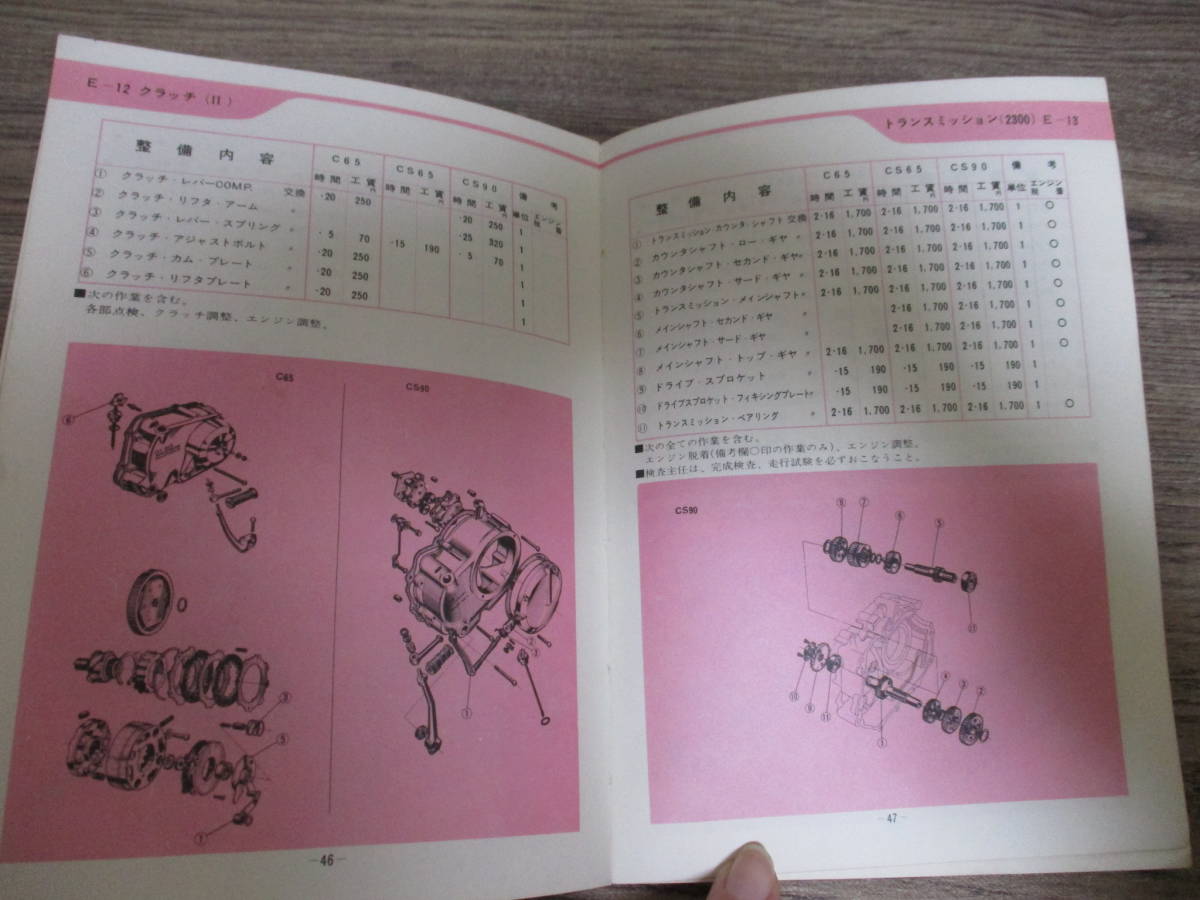 E-12 クラッチ(II)
整備内容 C65 CS65 CS90 備考
時間 工賃円 時間 工賃円 時間 工賃円 単位 エンジン脱着
① クラッチ・レバーCOMP. 交換 ·20 250 ·20 250 1
② クラッチ・リフタ・アーム 〃 ·25 320 1
③ クラッチ・レバー・スプリング 〃 ·5 70 ·5 70 1
④ クラッチ・アジャストボルト 〃 ·20 250 ·15 190 1
⑤ クラッチ・カム・プレート 〃 ·20 250 1
⑥ クラッチ・リフタプレート 〃 ·20 250 1
■次の作業を含む。
各部点検、クラッチ調整、エンジン調整。
C65
CS90
⑥
③
⑤
①
③
①
—46—
トランスミッション(2300) E-13
整備内容 C65 CS65 CS90 備考
時間 工賃円 時間 工賃円 時間 工賃円 単位 エンジン脱着
① トランスミッション・カウンタ・シャフト 交換 2·16 1,700 2·16 1,700 2·16 1,700 1 ○
② カウンタシャフト・ロー・ギヤ 〃 2·16 1,700 2·16 1,700 2·16 1,700 1 ○
③ カウンタシャフト・セカンド・ギヤ 〃 2·16 1,700 2·16 1,700 2·16 1,700 1 ○
④ カウンタシャフト・サード・ギヤ 〃 2·16 1,700 2·16 1,700 2·16 1,700 1 ○
⑤ トランスミッション・メインシャフト 〃 2·16 1,700 2·16 1,700 2·16 1,700 1 ○
⑥ メインシャフト・セカンド・ギヤ 〃 2·16 1,700 2·16 1,700 1 ○
⑦ メインシャフト・サード・ギヤ 〃 2·16 1,700 2·16 1,700 1 ○
⑧ メインシャフト・トップ・ギヤ 〃 2·16 1,700 2·16 1,700 2·16 1,700 1 ○
⑨ ドライブ・スプロケット 〃 ·15 190 ·15 190 ·15 190 1
⑩ ドライブスプロケット・フィキシングプレート 〃 ·15 190 ·15 190 ·15 190 1
⑪ トランスミッション・ベアリング 〃 2·16 1,700 2·16 1,700 2·16 1,700 1 ○
■次の全ての作業を含む。
エンジン脱着(備考欄○印の作業のみ)、エンジン調整。
■検査主任は、完成検査、走行試験を必ずおこなうこと。
CS90
⑧ ⑦ ⑥ ⑤
⑪
④ ③ ②
⑩ ⑨ ⑪
①
—47—